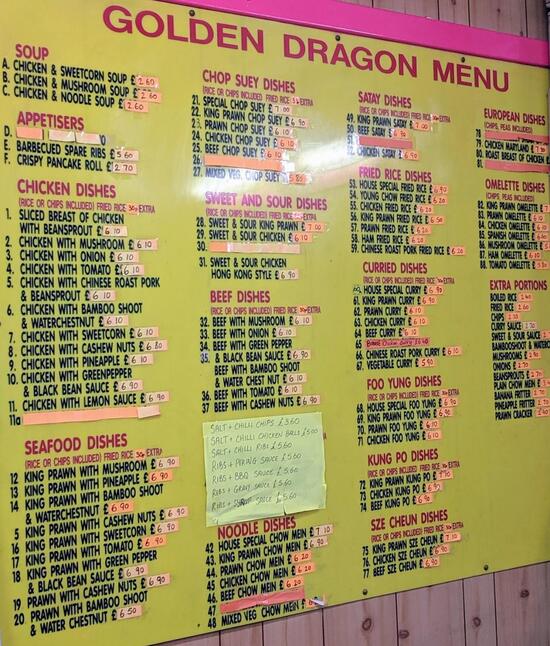 GOLDEN DRAGON MENU
SOUP
A. CHICKEN & SWEETCORN SOUP £2.60
B. CHICKEN & MUSHROOM SOUP £2.60
C. CHICKEN & NOODLE SOUP £2.60
APPETISERS
D.
E. BARBECUED SPARE RIBS £5.60
F. CRISPY PANCAKE ROLL £2.70
CHICKEN DISHES
(RICE OR CHIPS INCLUDED) FRIED RICE 30p EXTRA
1. SLICED BREAST OF CHICKEN
WITH BEANSPROUT £6.10
2. CHICKEN WITH MUSHROOM £6.10
3. CHICKEN WITH ONION £6.10
4. CHICKEN WITH TOMATO £6.10
5. CHICKEN WITH CHINESE ROAST PORK
& BEANSPROUT £6.10
6. CHICKEN WITH BAMBOO SHOOT
& WATERCHESTNUT £6.10
7. CHICKEN WITH SWEETCORN £6.10
8. CHICKEN WITH CASHEW NUTS £6.80
9. CHICKEN WITH PINEAPPLE £6.10
10. CHICKEN WITH GREENPEPPER
& BLACK BEAN SAUCE £6.90
11. CHICKEN WITH LEMON SAUCE £6.90
11a
SEAFOOD DISHES
(RICE OR CHIPS INCLUDED) FRIED RICE 30p EXTRA
12 KING PRAWN WITH MUSHROOM £6.90
13 KING PRAWN WITH PINEAPPLE £6.90
14 KING PRAWN WITH BAMBOO SHOOT
& WATERCHESTNUT £6.90
5 KING PRAWN WITH CASHEW NUTS £6.90
16 KING PRAWN WITH SWEETCORN £6.90
17 KING PRAWN WITH TOMATO £6.90
18 KING PRAWN WITH GREEN PEPPER
& BLACK BEAN SAUCE £6.90
19 PRAWN WITH CASHEW NUTS £6.90
20 PRAWN WITH BAMBOO SHOOT
& WATER CHESTNUT £6.50
CHOP SUEY DISHES
(RICE OR CHIPS INCLUDED) FRIED EXTRA
21. SPECIAL CHOP SUEY £7.00
22. KING PRAWN CHOP SUEY £6.90
23. PRAWN CHOP SUEY £6.10
24. CHICKEN CHOP SUEY £6.10
25. BEEF CHOP SUEY £6.10
26.
27. MIXED VEG. CHOP SUEY
SWEET AND SOUR DISHES
(RICE OR CHIPS INCLUDED) FRIED RICE EXTRA
28. SWEET & SOUR KING PRAWN £7.00
29. SWEET & SOUR CHICKEN £6.10
30.
31. SWEET & SOUR CHICKEN
HONG KONG STYLE £6.90
BEEF DISHES
(RICE OR CHIPS INCLUDED) FRIED RICE 30p EXTRA
32. BEEF WITH MUSHROOM £6.10
33. BEEF WITH ONION £6.10
34. BEEF WITH GREEN PEPPER
& BLACK BEAN SAUCE £6.90
35. BEEF WITH BAMBOO SHOOT
& WATER CHEST NUT £6.10
36. BEEF WITH TOMATO £6.10
37 BEEF WITH CASHEW NUTS £6.90
SALT + CHILLI CHIPS £3.60
SALT + CHILLI CHICKEN BALLS £5.00
SALT + CHILLI RIBS £5.60
RIBS + PEKING SAUCE £5.60
RIBS + BBQ SAUCE £5.60
RIBS + GRAVY SAUCE £5.60
RIBS + SAUCE £5.60
NOODLE DISHES
42 HOUSE SPECIAL CHOW MEIN £7.10
43. KING PRAWN CHOW MEIN £6.90
44. PRAWN CHOW MEIN £6.20
45 CHICKEN CHOW MEIN £6.20
46. BEEF CHOW MEIN £6.20
47
48 MIXED VEG CHOW MEIN £
SATAY DISHES
(RICE OR CHIPS INCLUDED) FRIED RICE EXTRA
49. KING PRAWN SATAY £7.00
50. BEEF SATAY £6.90
51.
52. CHICKEN SATAY £6.90
FRIED RICE DISHES
53. HOUSE SPECIAL FRIED RICE £6.90
54. YOUNG CHOW FRIED RICE £6.20
55. CHICKEN FRIED RICE £6.20
56. KING PRAWN FRIED RICE £6.50
57. PRAWN FRIED RICE £6.20
58. HAM FRIED RICE £6.20
59. CHINESE ROAST PORK FRIED RICE £6.20
CURRIED DISHES
(RICE OR CHIPS INCLUDED) FRIED RICE EXTRA
60. HOUSE SPECIAL CURRY £6.90
61. KING PRAWN CURRY £6.90
62. PRAWN CURRY £6.10
63. CHICKEN CURRY £6.10
64 BEEF CURRY £6.10
65
66. CHINESE ROAST PORK CURRY £6.10
67. VEGETABLE CURRY £5.90
FOO YUNG DISHES
(RICE OR CHIPS INCLUDED) FRIED RICE EXTRA
68. HOUSE SPECIAL FOO YUNG £6.90
69. KING PRAWN FOO YUNG £6.90
70. PRAWN FOO YUNG £6.10
71. CHICKEN FOO YUNG £6.10
KUNG PO DISHES
(RICE OR CHIPS INCLUDED) FRIED RICE EXTRA
72 KING PRAWN KUNG PO £7.10
73 CHICKEN KUNG PO £6.90
74 BEEF KUNG PO £6.90
SZE CHEUN DISHES
(RICE OR CHIPS INCLUDED) FRIED RICE EXTRA
75 KING PRAWN SZE CHEUN £7.10
76 CHICKEN SZE CHEUN £6.90
77 BEEF SZE CHEUN £6.90
EUROPEAN DISHES
(CHIPS, PEAS INCLUDED)
78
79 CHICKEN MARYLAND £
80. ROAST BREAST OF CHICKEN £
81.
OMELETTE DISHES
(CHIPS, PEAS INCLUDED)
82. KING PRAWN OMELETTE £
83. PRAWN OMELETTE £
84. CHICKEN OMELETTE £
85. SPANISH OMELETTE £
86. MUSHROOM OMELETTE £
87. HAM OMELETTE £
88. TOMATO OMELETTE £
EXTRA PORTIONS
BOILED RICE
FRIED RICE
CHIPS
CURRY SAUCE
SWEET & SOUR SAUCE
BAMBOOSHOOT & WATERCHESTNUT
MUSHROOMS £
ONIONS £
BEANSPROUTS £
PLAIN CHOW MEIN £
BANANA FRITTER £
PINEAPPLE FRITTER £
PRAWN CRACKER £